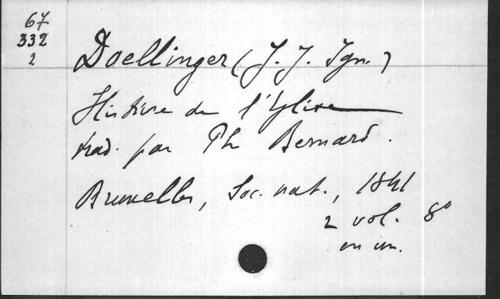 67
332
2
Doellinger (J. J. Ign.)
Histoire de l'Eglise
trad. par Ph Bernard.
Bruxelles, Soc. nat., 1841
2 vol. 8°
en un.